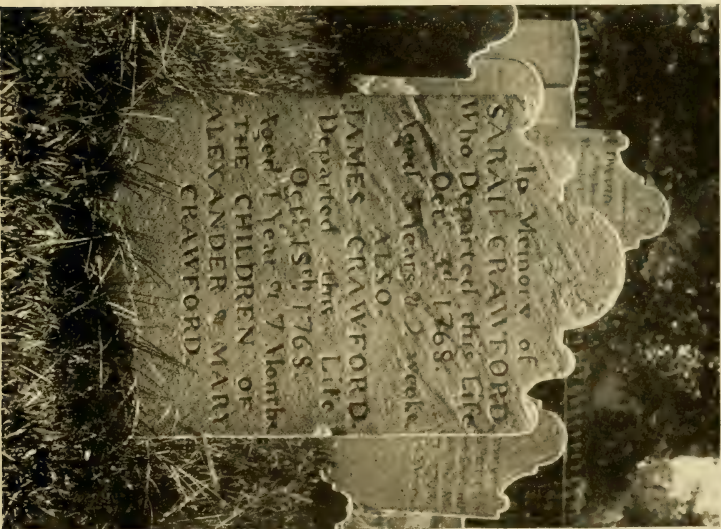 In Memory of
SARAH CRAWFORD
Who Departed this Life
Octr 3d 1768.
Aged 3 Years & 2 weeks
ALSO.
JAMES CRAWFORD
Departed this Life
Octr 15th 1768.
Aged 1 Year & 7 Months
THE CHILDREN OF
ALEXANDER & MARY
CRAWFORD